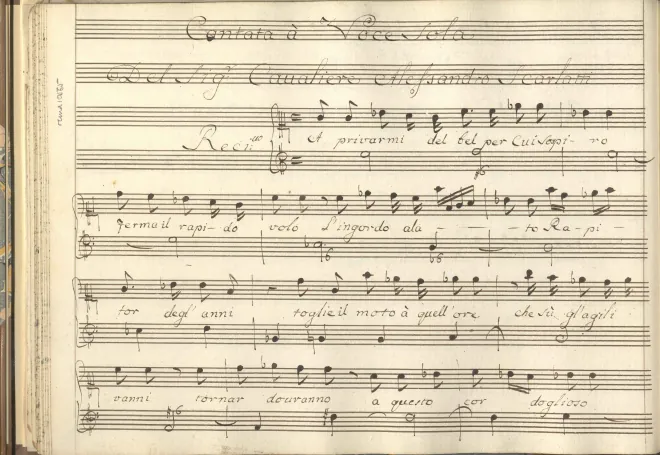 Cantata à Voce Sola
Del Sig.r Cavaliere Alessandro Scarlatti
Recit.vo A privarmi del bel per Cui Sospi-ro
Ferma il rapi-do volo L'ingordo ala - - - to Ra-pi-
tor degl' anni toglie il moto à quell' ore che sù gl'agili
vanni tornar douranno a questo cor doglioso